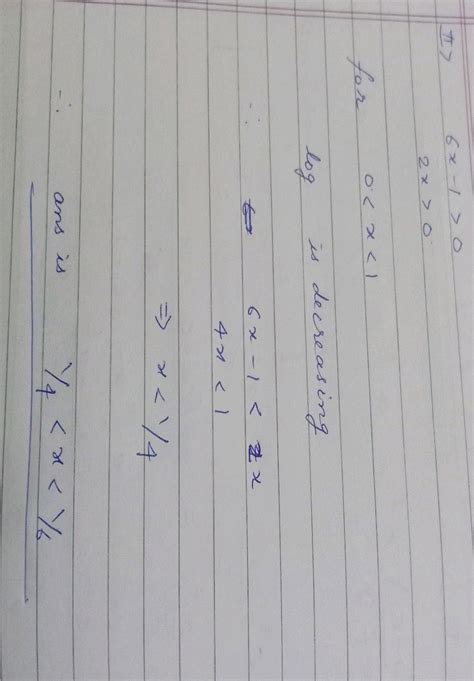 II>
6x-1>0
2x>0
for 0<x<1
log is decreasing
∴ 6x-1<2x
4x<1
⇒ x<1/4
∴ ans is 1/4<x<1/6